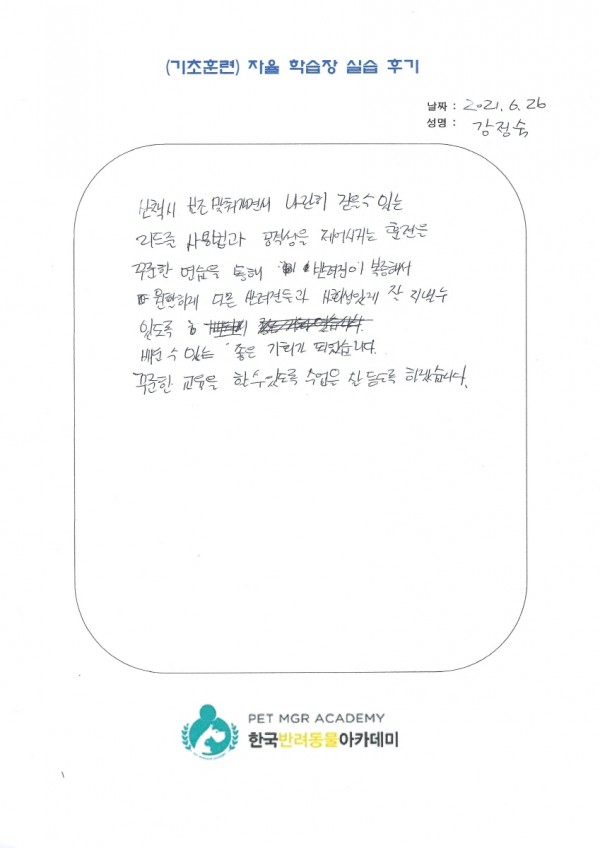 (기초훈련) 자율 학습장 실습 후기
날짜 : 2021. 6. 26
성명 : 강정숙
산책시 보조 맞춰가면서 나란히 걸을수 있는
리드줄 사용법과 공격성을 제어시키는 훈련을
꾸준한 연습을 통해 반려견이 복종해서
원만하게 다른 반려견들과 사회성있게 잘 지낼수
있도록
배울 수 있는 좋은 기회가 되었습니다.
꾸준한 교육을 할수있도록 수업은 잘 듣도록 하겠습니다.
PET MGR ACADEMY
한국반려동물아카데미